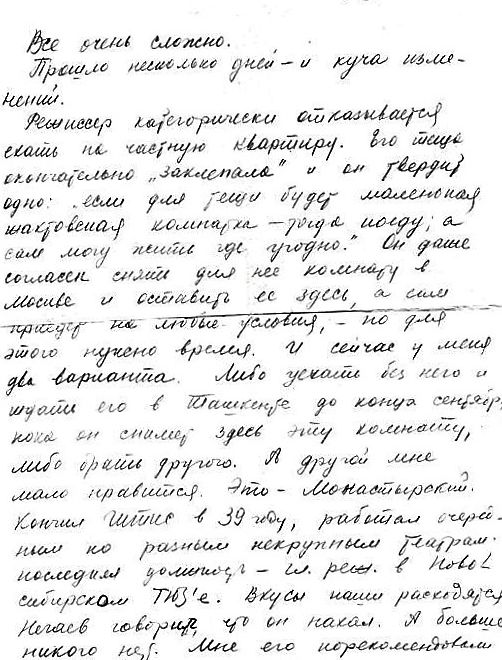 Все очень сложно.
Прошло несколько дней – и куча изме-
нений.
Режиссер категорически отказывается
ехать на частную квартиру. Его теща
окончательно „заклепала" и он твердит
одно: „если для тещи будет маленькая
актовская комнатка – тогда поеду; а
сам могу жить где угодно." Он даже
согласен снять для нее комнату в
Москве и оставить ее здесь, а сам
приедет на любые условия, – но для
этого нужено время. И сейчас у меня
два варианта. Либо уехать без него и
ждать его в Ташкенте до конца сентября,
пока он снимет здесь эту комнату,
либо брать другого. А другой мне
мало нравится. Это – Монастырский.
Кончил ГИТИС в 39 году, работал очеред-
ным по разным некрупным театрам.
последняя должность – гл. реж. в Ново-
сибирском ТЮЗ'е. Вкусы наши расходятся.
говорит, что он нахал. А больше
никого нет. Мне его порекомендовали